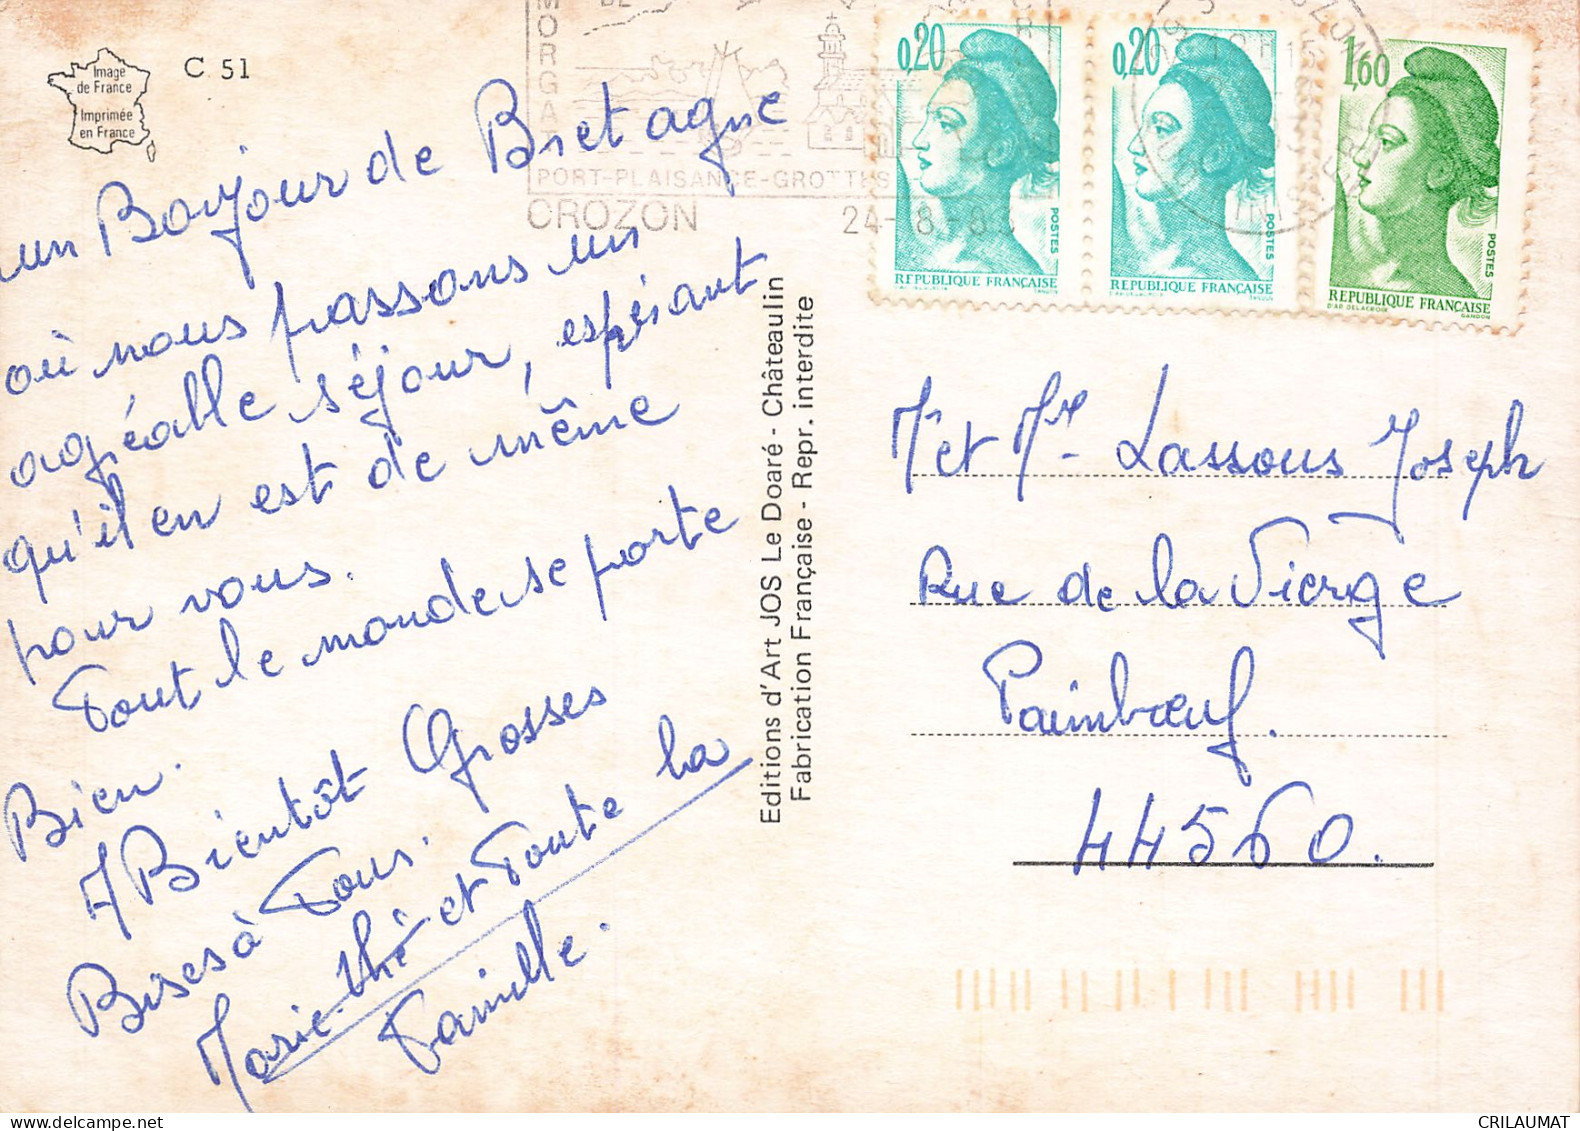 Image
de France
Imprimée
en France
C 51
un Bonjour de Bretagne
où nous passons un
agréable séjour, espérant
qu'il en est de même
pour vous.
Tout le monde se porte
Bien.
A Bientôt Grosses
Bises à Tous.
Marie-thé et Toute la
Famille.
MORGA
PORT-PLAISANCE-GROTTES
CROZON
24-8-8
0,20
POSTES
REPUBLIQUE FRANÇAISE
0,20
POSTES
REPUBLIQUE FRANÇAISE
1,60
POSTES
REPUBLIQUE FRANÇAISE
D'AP. DELACROIX GANDON
Editions d'Art JOS Le Doaré - Châteaulin
Fabrication Française - Repr. interdite
Mr et Mme Lassous Joseph
Rue de la Vierge
Paimbœuf.
44560.
CRILAUMAT